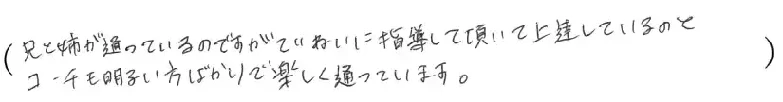 (兄と姉が通っているのですがていねいに指導して頂いて上達しているのと
コーチも明るい方ばかりで楽しく通っています。)